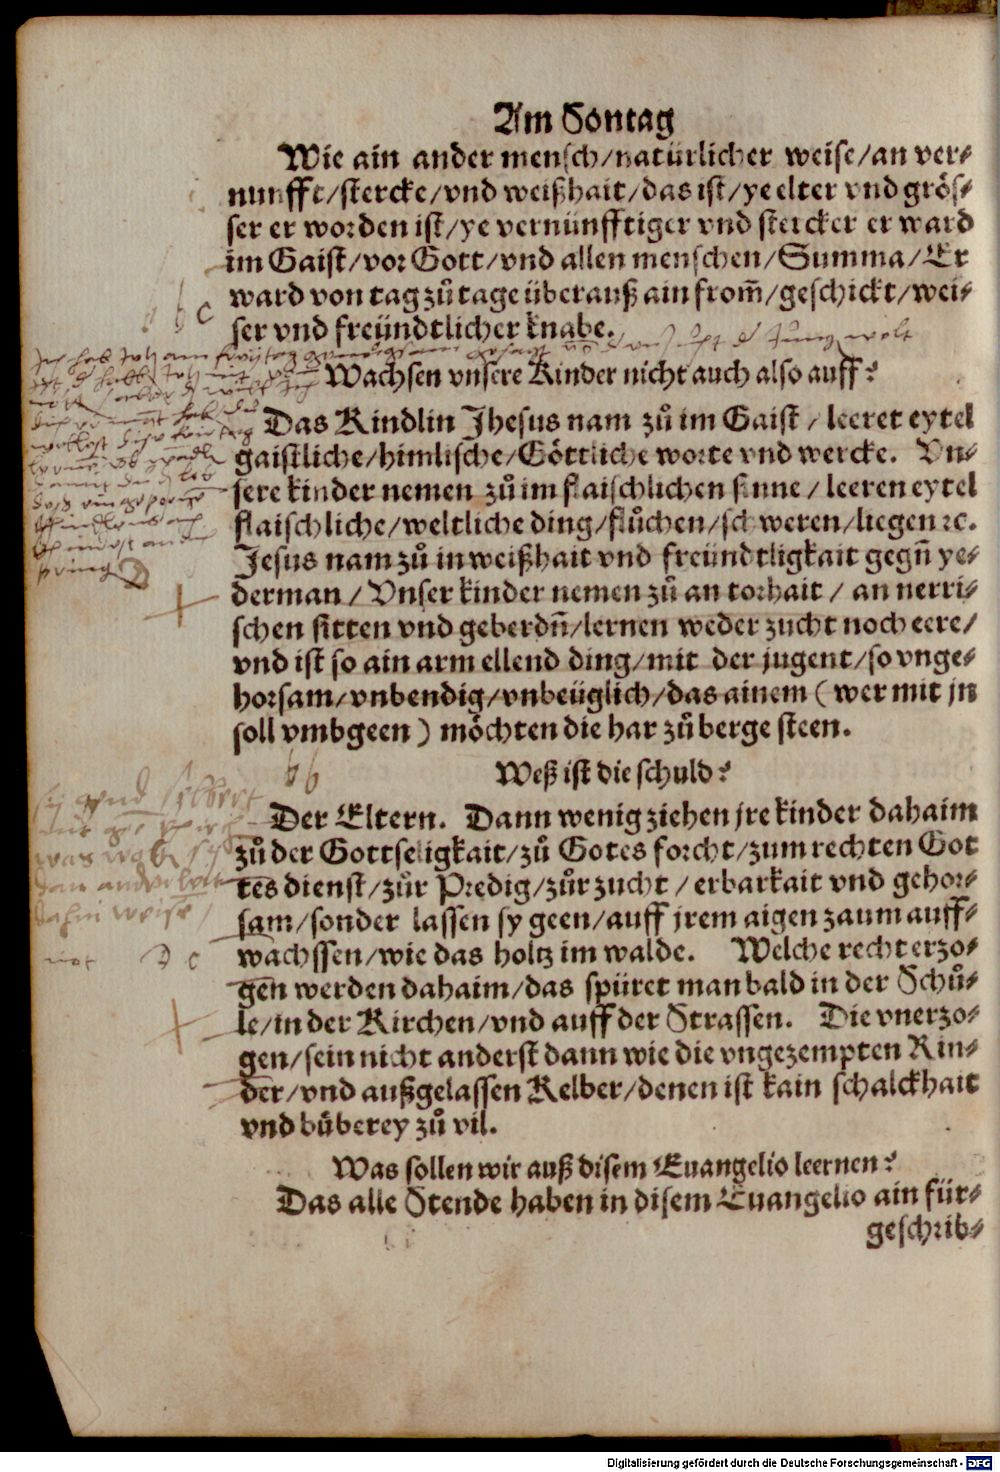 Am Sontag
Wie ain ander mensch/natürlicher weise/an ver⸗
nunfft/stercke/vnd weißhait/das ist/ye elter vnd grös⸗
ser er worden ist/ye vernünfftiger vnd stercker er ward
im Gaist/vor Gott/vnd allen menschen/Summa/Er
ward von tag zuͦ tage überauß ain from̄/geschickt/wei⸗
ser vnd freündtlicher knabe.
Wachsen vnsere Kinder nicht auch also auff?
Das Kindlin Jhesus nam zuͦ im Gaist / leeret eytel
gaistliche/himlische/Göttliche worte vnd wercke. Vn⸗
sere kinder nemen zuͦ im flaischlichen sinne / leeren eytel
flaischliche/weltliche ding/fluͦchen/schweren/liegen ꝛc.
Jesus nam zuͦ in weißhait vnd freündtligkait gegn̄ ye⸗
derman / Vnser kinder nemen zuͦ an torhait / an nerri⸗
schen sitten vnd geberdn̄/lernen weder zucht noch eere/
vnd ist so ain arm ellend ding/mit der jugent/so vnge⸗
horsam/vnbendig/vnbeüglich/das ainem ( wer mit jn
soll vmbgeen ) möchten die har zuͦ berge steen.
Weß ist die schuld?
Der Eltern. Dann wenig ziehen jre kinder dahaim
zuͦ der Gottseligkait/zuͦ Gotes forcht/zum rechten Got
tes dienst/zuͦr Predig/zuͦr zucht / erbarkait vnd gehor⸗
sam/sonder lassen sy geen/auff jrem aigen zaum auff⸗
wachssen/wie das holtz im walde. Welche recht erzo⸗
gen werden dahaim/das spüret man bald in der Schuͦ⸗
le/in der Kirchen/vnd auff der Strassen. Die vnerzo⸗
gen/sein nicht anderst dann wie die vngezempten Rin⸗
der/vnd außgelassen Kelber/denen ist kain schalckhait
vnd büberey zuͦ vil.
Was sollen wir auß disem Euangelio leernen?
Das alle Stende haben in disem Euangelio ain für⸗
geschrib⸗
Digitalisierung gefördert durch die Deutsche Forschungsgemeinschaft - DFG